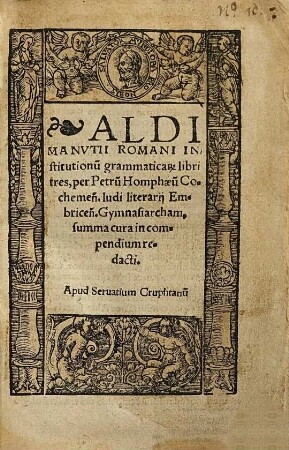 No 10.
ALDI
MANVTII ROMANI IN
stitutionū grammaticaꝝ libri
tres, per Petrū Homphæū Co-
chemeñ. ludi literarij Em-
bricen̄. Gymnasiarcham,
summa cura in com-
pendium re-
dacti.
Apud Seruatium Cruphtanū